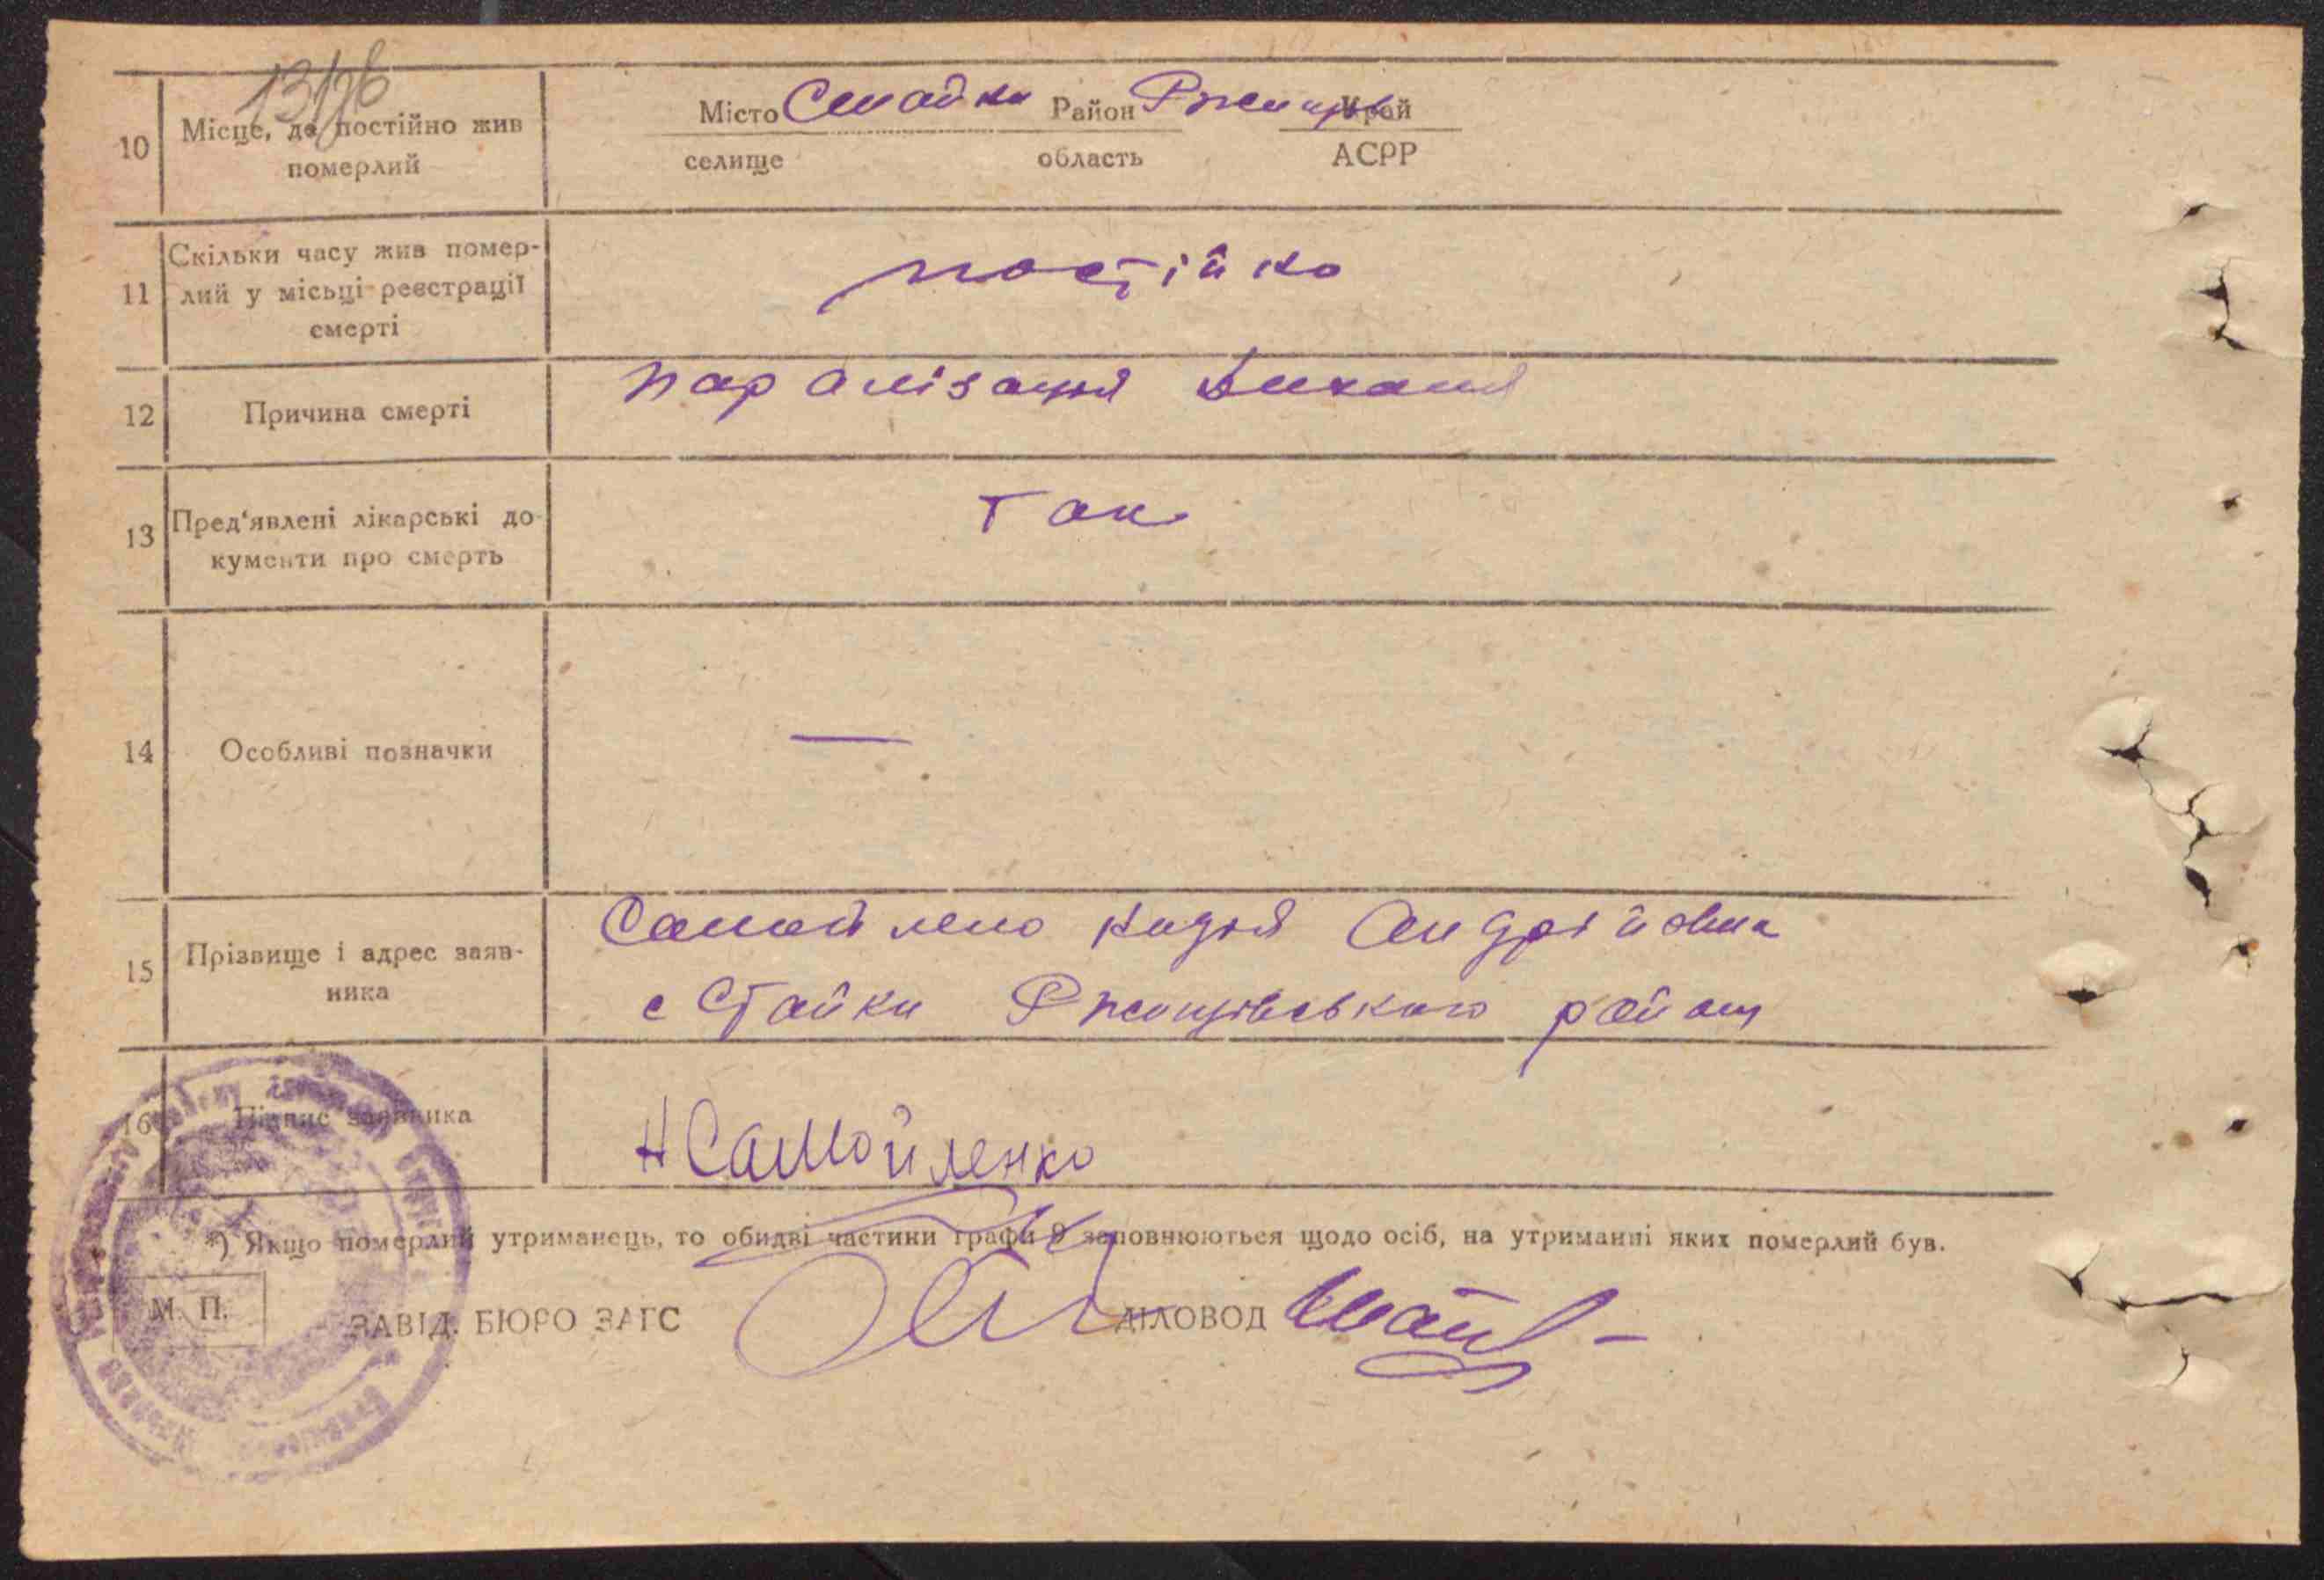 131/6
10 Місце, де постійно жив померлий
Місто Стайки Район Ржищів Край
селище область АСРР
11 Скільки часу жив помер-
лий у місьці реєстрації
смерті
постійно
12 Причина смерті
паралізація
13 Пред'явлені лікарські до-
кументи про смерть
так
14 Особливі позначки
—
15 Прізвище і адрес заяв-
ника
Самойлено Надія Андрійовна
с Стайки Ржищівського району
16 Підпис заявника
Н Самойленко
*) Якщо померлий утриманець, то обидві частини графи 9 заповнюються щодо осіб, на утриманні яких померлий був.
М. П. ЗАВІД. БЮРО ЗАГС ДІЛОВОД